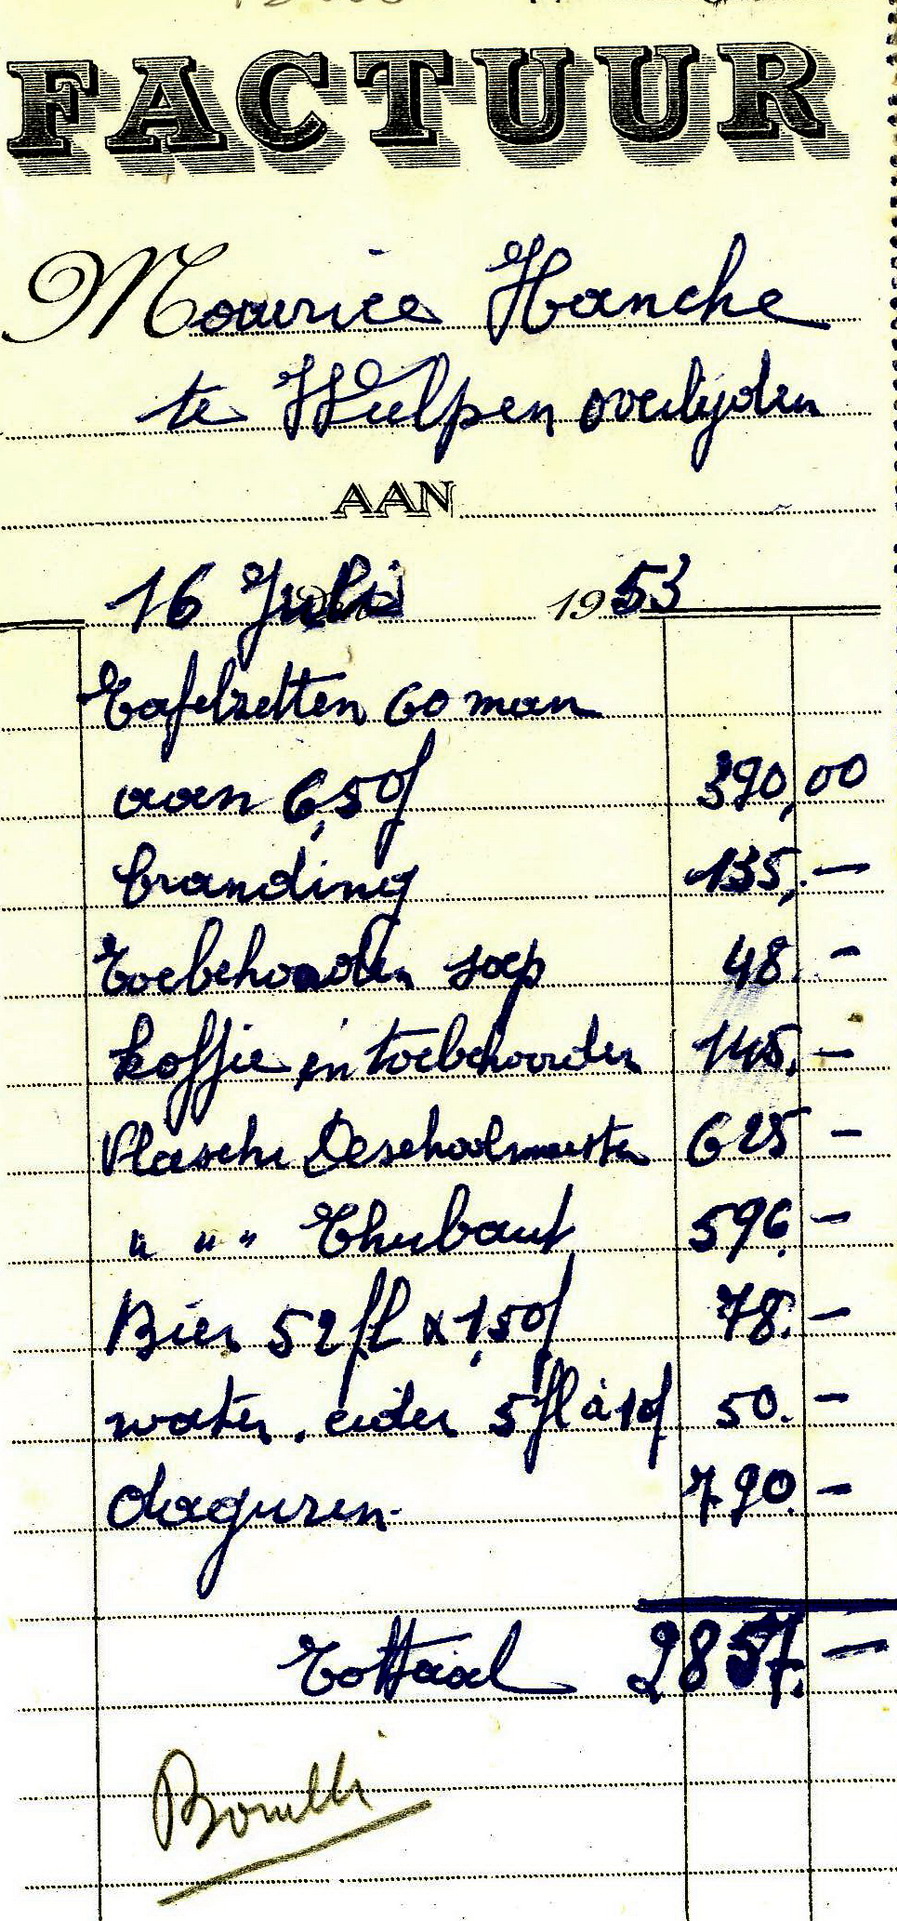 FACTUUR
Maurice Hanche
te Wulpen overlijden
AAN
16 Juli 1953
Tafelzetten 60 man
aan 6,50f 390,00
branding 135,-
Toebehoorden soep 48.-
koffie en toebehoorden 145.-
Vlasch Deschoolmeester 625 -
" " " Thubaut 596.-
Bier 52 fl x 1,50f 78.-
water. cider 5 fl à 10f 50.-
daguren. 790.-
Tottaal 2857.-